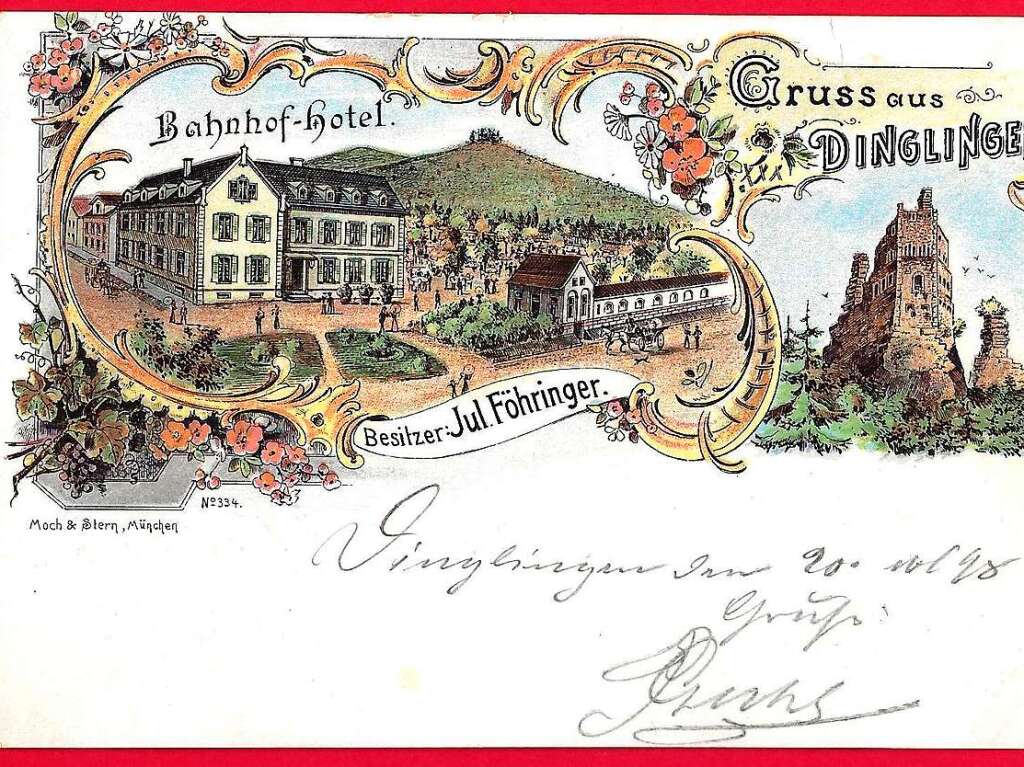 Bahnhof-Hotel.
Gruss aus
DINGLINGE
Besitzer: Jul. Föhringer.
No 334.
Moch & Stern, München
Dinglingen den 20. 98
Gruß